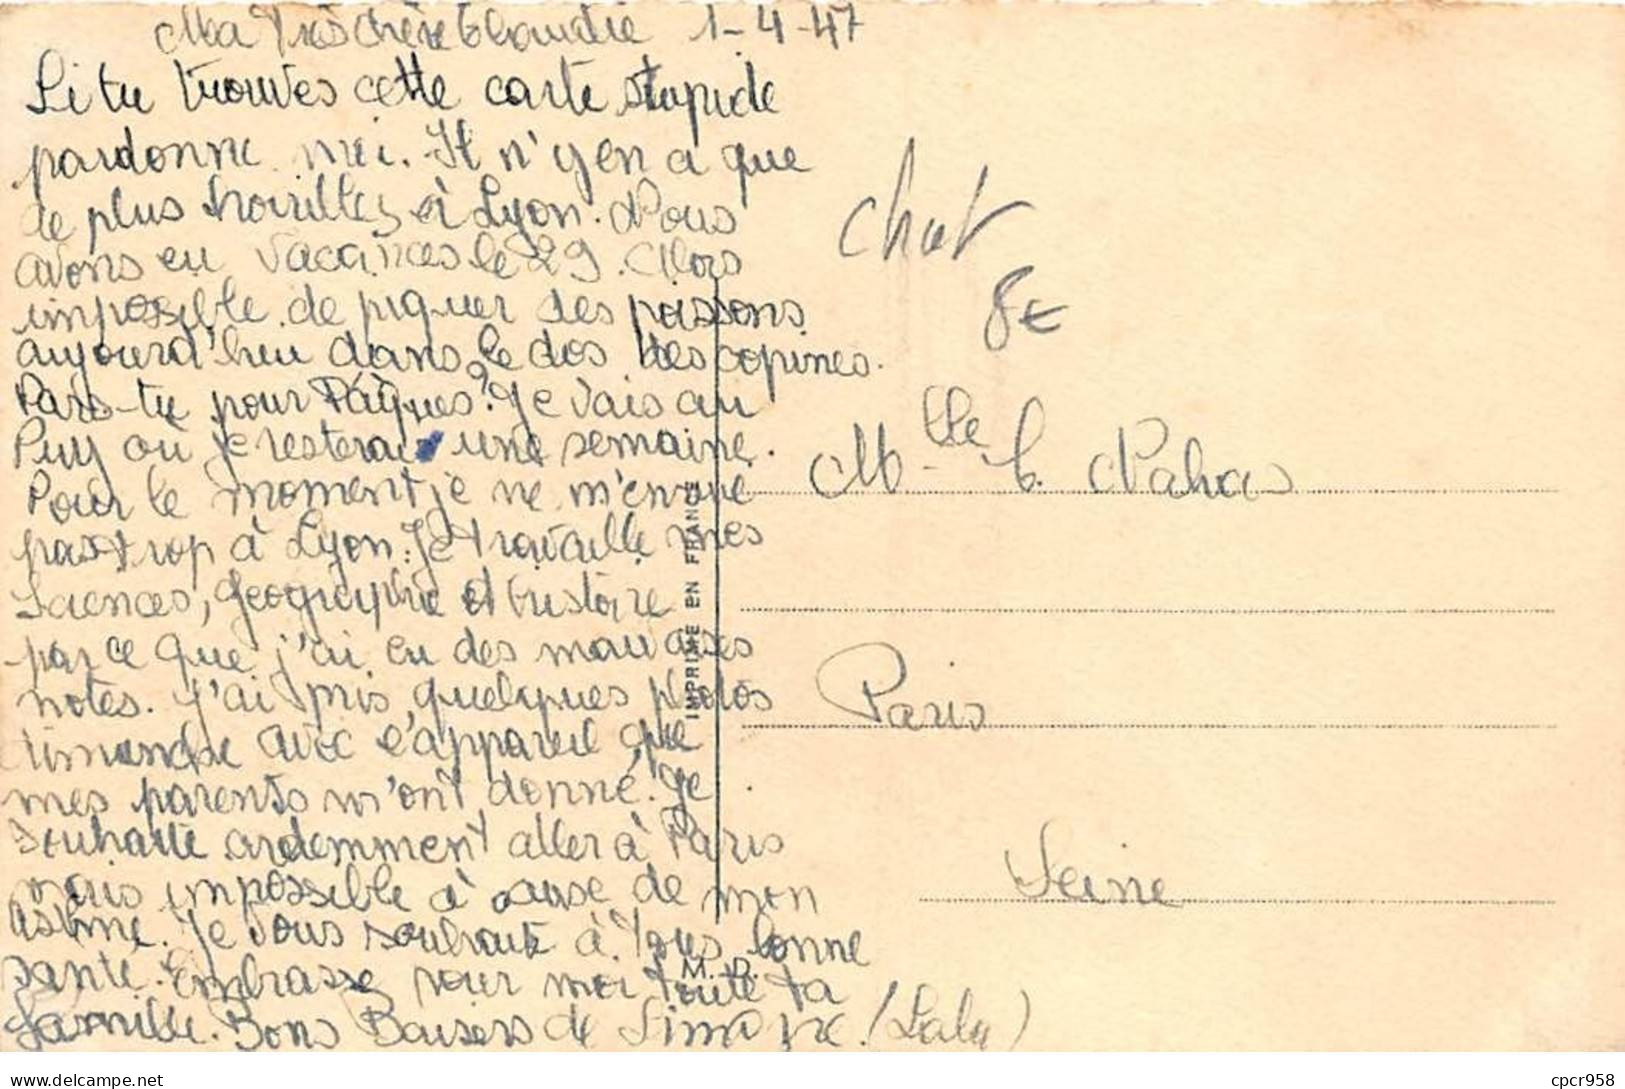 Ma Très chère Claudie 1-4-47
Si tu trouves cette carte stupide
pardonne moi. Il n'y en a que
de plus horribles à Lyon. Nous
avons eu vacances le 29. Alors
impossible de piquer des poissons
aujourd'hui dans le dos des copines.
Pars-tu pour Pâques? Je vais au
Puy où je resterai une semaine.
Pour le moment je ne m'ennuie
pas trop à Lyon. Je travaille mes
Sciences, Géographie et histoire
parce que j'ai eu des mauvaises
notes. J'ai pris quelques photos
dimanche avec l'appareil que
mes parents m'ont donné. Je
souhaite ardemment aller à Paris
mais impossible à cause de mon
asthme. Je vous souhaite à Tous bonne
santé. Embrasse pour moi toute ta
famille. Bons Baisers de Simone. (Lalu)
IMPRIMÉ EN FRANCE
M. D.
Chat
8€
Mlle C. Nahas
Paris
Seine
delcampe.net
cpcr958